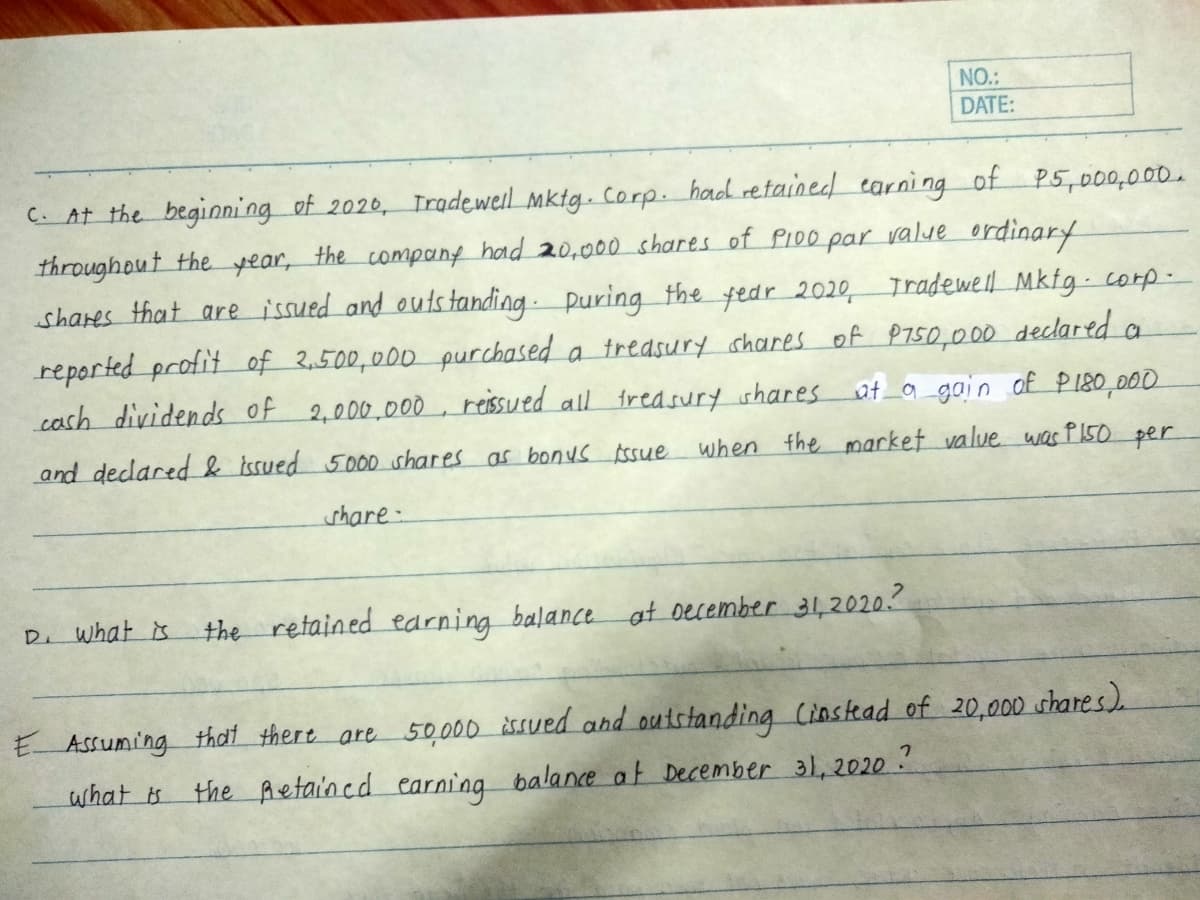 NO.:
DATE:
C. At the beginning of 2020, Tradewell Mktg. Corp. had retained earning of P5,000,000.
throughout the year, the company had 20,000 shares of P100 par value ordinary
shares that are issued and outstanding. During the year 2020, Tradewell Mktg. corp.
reported profit of 2,500,000 purchased a treasury shares of P750,000 declared a
cash dividends of 2,000,000, reissued all treasury shares at a gain of P180,000
and declared & issued 5000 shares as bonus issue when the market value was P150 per
share.
D. What is the retained earning balance at December 31, 2020.?
E Assuming that there are 50,000 issued and outstanding (instead of 20,000 shares).
what is the Retained earning balance at December 31, 2020?